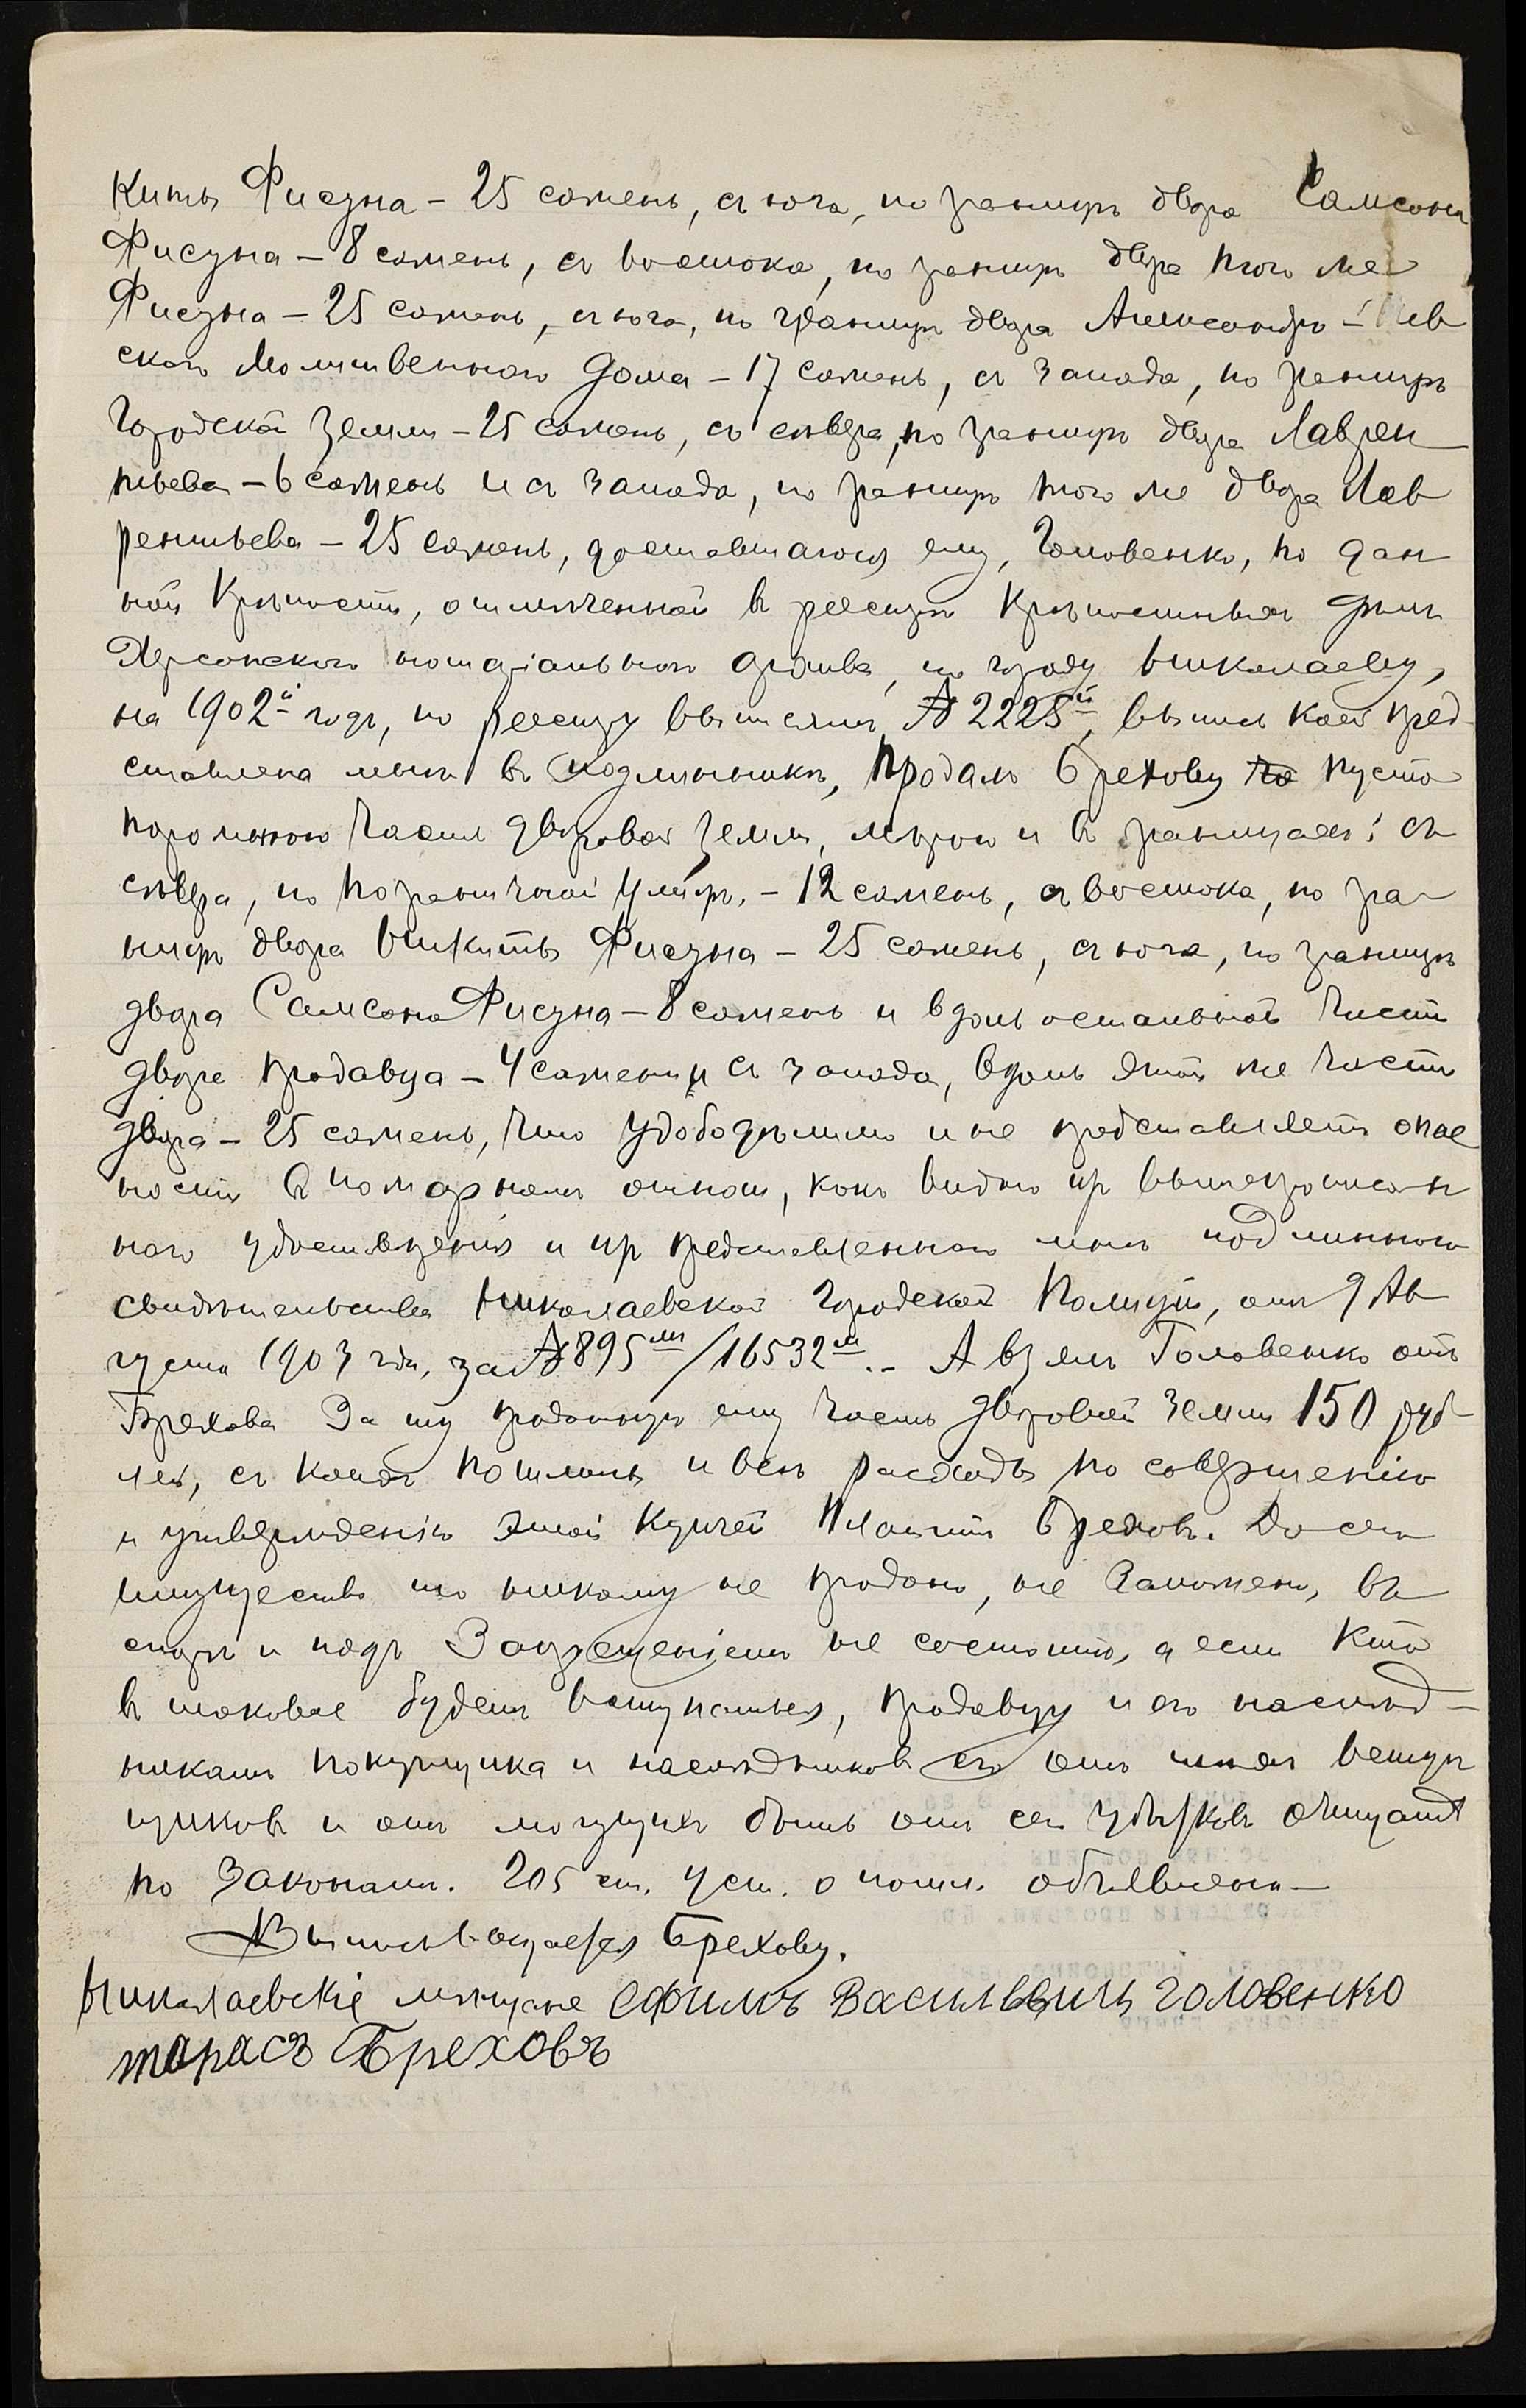 киты Фисуна – 25 сажень, съ юга, по границѣ двора Самсона
Фисуна – 8 сажень, съ востока, по границѣ двора того же
Фисуна – 25 сажень, съ юга, по границѣ двора Александро-Нев
скаго Молитвеннаго дома – 17 сажень, съ запада, по границѣ
городской земли – 25 сажень, съ сѣвера, по границѣ двора Лаврен
тьева – 6 сажень и съ запада, по границѣ того же двора Лав
рентьева – 25 сажень, доставшагося ему, Головенко, по дан
ной крѣпости, отмѣченной въ реестрѣ крѣпостныхъ дѣлъ
Херсонскаго нотаріальнаго архива, по городу Николаеву,
на 1902й годъ, по реестру выписямъ № 2225й, выпись коей пред-
ставлена мнѣ въ подлинникѣ, продалъ Брехову пусто
порожнюю часть дворовой земли, мѣрою и въ границахъ: съ
сѣвера, по пограничной улицѣ, – 12 сажень, съ востока, по гра-
ницѣ двора Никиты Фисуна – 25 сажень, съ юга, по границѣ
двора Самсона Фисуна – 8 сажень и вдоль остальной части
двора продавца – 4 сажени и съ запада, вдоль этой же части
двора – 25 сажень, что удободѣлимо и не представляетъ опас
ности въ пожарномъ отнош, какъ видно изъ вышепрописан
наго удостовѣренія и изъ представленнаго мнѣ подлиннаго
свидѣтельства Николаевской Городской Полиціи, отъ 9 Ав
густа 1903 года, за № 895мъ/16532м. – А взялъ Головенко отъ
Брехова за ту проданную ему часть дворовой земли 150 руб
лей, съ коихъ пошлины и всѣ расходы по совершенію
и утвержденію этой купчей платитъ Бреховъ. До сего
имущество то никому не продано, не заложено, въ
спорѣ и подъ запрещеніемъ не состоитъ, а если кто
въ таковое будетъ вступаться, продавцу и его наслѣд-
никамъ покупщика и наслѣдниковъ его отъ тѣхъ вступ
щиковъ и отъ могущихъ быть отъ сего убытковъ очищать
по законамъ. 205 ст. уст. о пошл. объявлена –
Выпись выдается Брехову.
Николаевскіе мѣщане Ефимъ Васильевичъ Головенко
тарасъ Бреховъ